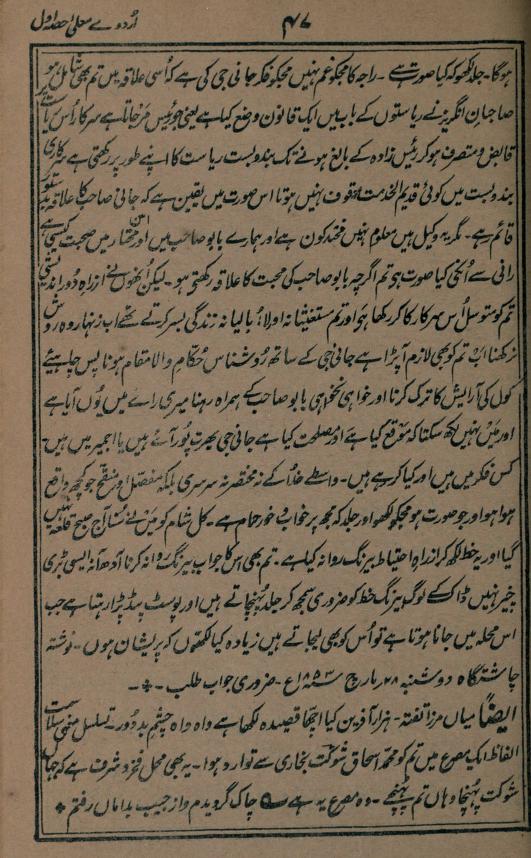 اُردوے معلیٰ حصۂ اول
۴۷
ہوگا۔ جلد لکھو کہ کیا صورت ہے۔ راجہ کا مجکو غم نہیں مجکو فکر جانی جی کی ہے کہ اُسی علاقہ میں تم بھی شامل ہو
صاحبان انگریز نے ریاستوں کے باب میں ایک قانون وضع کیا ہے یعنی جو رئیس مرجاتا ہے سرکار اُس ریاست پر
قابض و متصرف ہو کر رئیس زادہ کے بالغ ہونے تک بندوبست ریاست کا اپنے طور پر رکھتی ہے سرکاری
بندوبست میں کوئی قدیم الخدمت موقوف نہیں ہوتا اس صورت میں یقین ہے کہ جانی صاحب کا علاقہ بدستور
قائم رہے۔ مگر یہ وکیل ہیں معلوم نہیں مختار کون ہے اور ہمارے بابو صاحب میں اور اُس مختار میں صحبت کیسی ہے
رانی سے اُنکی کیا صورت ہے تم اگرچہ بابو صاحب کی محبت کا علاقہ رکھتے ہو۔ لیکن اُنھوں نے ازراہ دُور اندیشی
تم کو متوسل اُس سرکار کا کر رکھا ہے اور تم مستغنیانہ اور لااُبالیانہ زندگی بسر کرتے تھے اب زنہار وہ روش
نرکھنا اب تم کو بھی لازم آپڑا ہے جانی جی کے ساتھ روشناس حُکّام والا مقام ہونا پس چاہیئے
کول کی آرایش کا ترک کرنا اور خواہی نخواہی بابو صاحب کے ہمراہ رہنا میری راے میں یوں آیا ہے
اور میں نہیں لکھ سکتا کہ موقع کیا ہے اور مصلحت کیا ہے جانی جی بھرت پور آئے ہیں یا اجمیر میں ہیں۔
کس فکر میں ہیں اور کیا کر رہے ہیں۔ واسطے خدا کے نہ مختصر نہ سرسری بلکہ مفصل اور منقح جو کچھ واقع
ہوا ہو اور جو صورت ہو مجکو لکھو اور جلد لکھو کہ مجھ پر خواب و خور حرام ہے۔ کل شام کو میں نے سُنا آج صبح قلعہ نہیں
گیا اور یہ خط لکھ کر ازراہ احتیاط بیرنگ روانہ کیا ہے۔ تم بھی اس کا جواب بیرنگ روانہ کرنا آدھ آنہ ایسی بڑی
چیز نہیں ڈاک کے لوگ بیرنگ خط کو ضروری سمجھ کر جلد پہنچاتے ہیں اور پوسٹ پیڈ پڑا رہتا ہے جب
اس محلہ میں جانا ہوتا ہے تو اُس کو بھی لیجاتے ہیں زیادہ کیا لکھوں کہ پریشان ہوں۔ نوشتہ
چاشتگاہ دوشنبہ ۲۸ مارچ ۱۸۵۳ع۔ ضروری جواب طلب۔
ایضاً میاں مرزا تفتہ۔ ہزار آفرین کیا اچھا قصیدہ لکھا ہے واہ واہ چشم بد دُور۔ تسلسل معنی سلاست
الفاظ ایک مصرع میں تم کو محمد اسحاق شوکت بخاری سے توارد ہوا۔ یہ بھی محل فخر و شرف ہے کہ جہاں
شوکت پہنچا وہاں تم پہنچے۔ وہ مصرع یہ ہے ؎ چاک گردیدم و از جیب بداماں رفتم